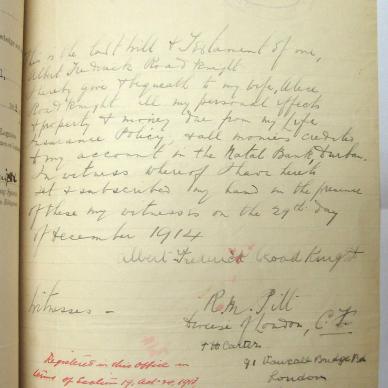 This is the last will & Testament of me,
Albert Fredrick Road Knight
I hereby give & bequeath to my wife, Alice
Road Knight all my personal effects
& property & money due from my Life
Insurance Policy, & all monies credited
to my account in the Natal Bank, Durban.
In witness whereof I have hereto
set & subscribed my hand in the presence
of these my witnesses on the 29th day
of December 1914
Albert Frederick Road Knight
Witnesses —
R. M. Pitt
House of London,
Carter
91 Vauxhall Bridge Rd
London
Registered in this Office in
terms of Section 19, Act 24, 1913